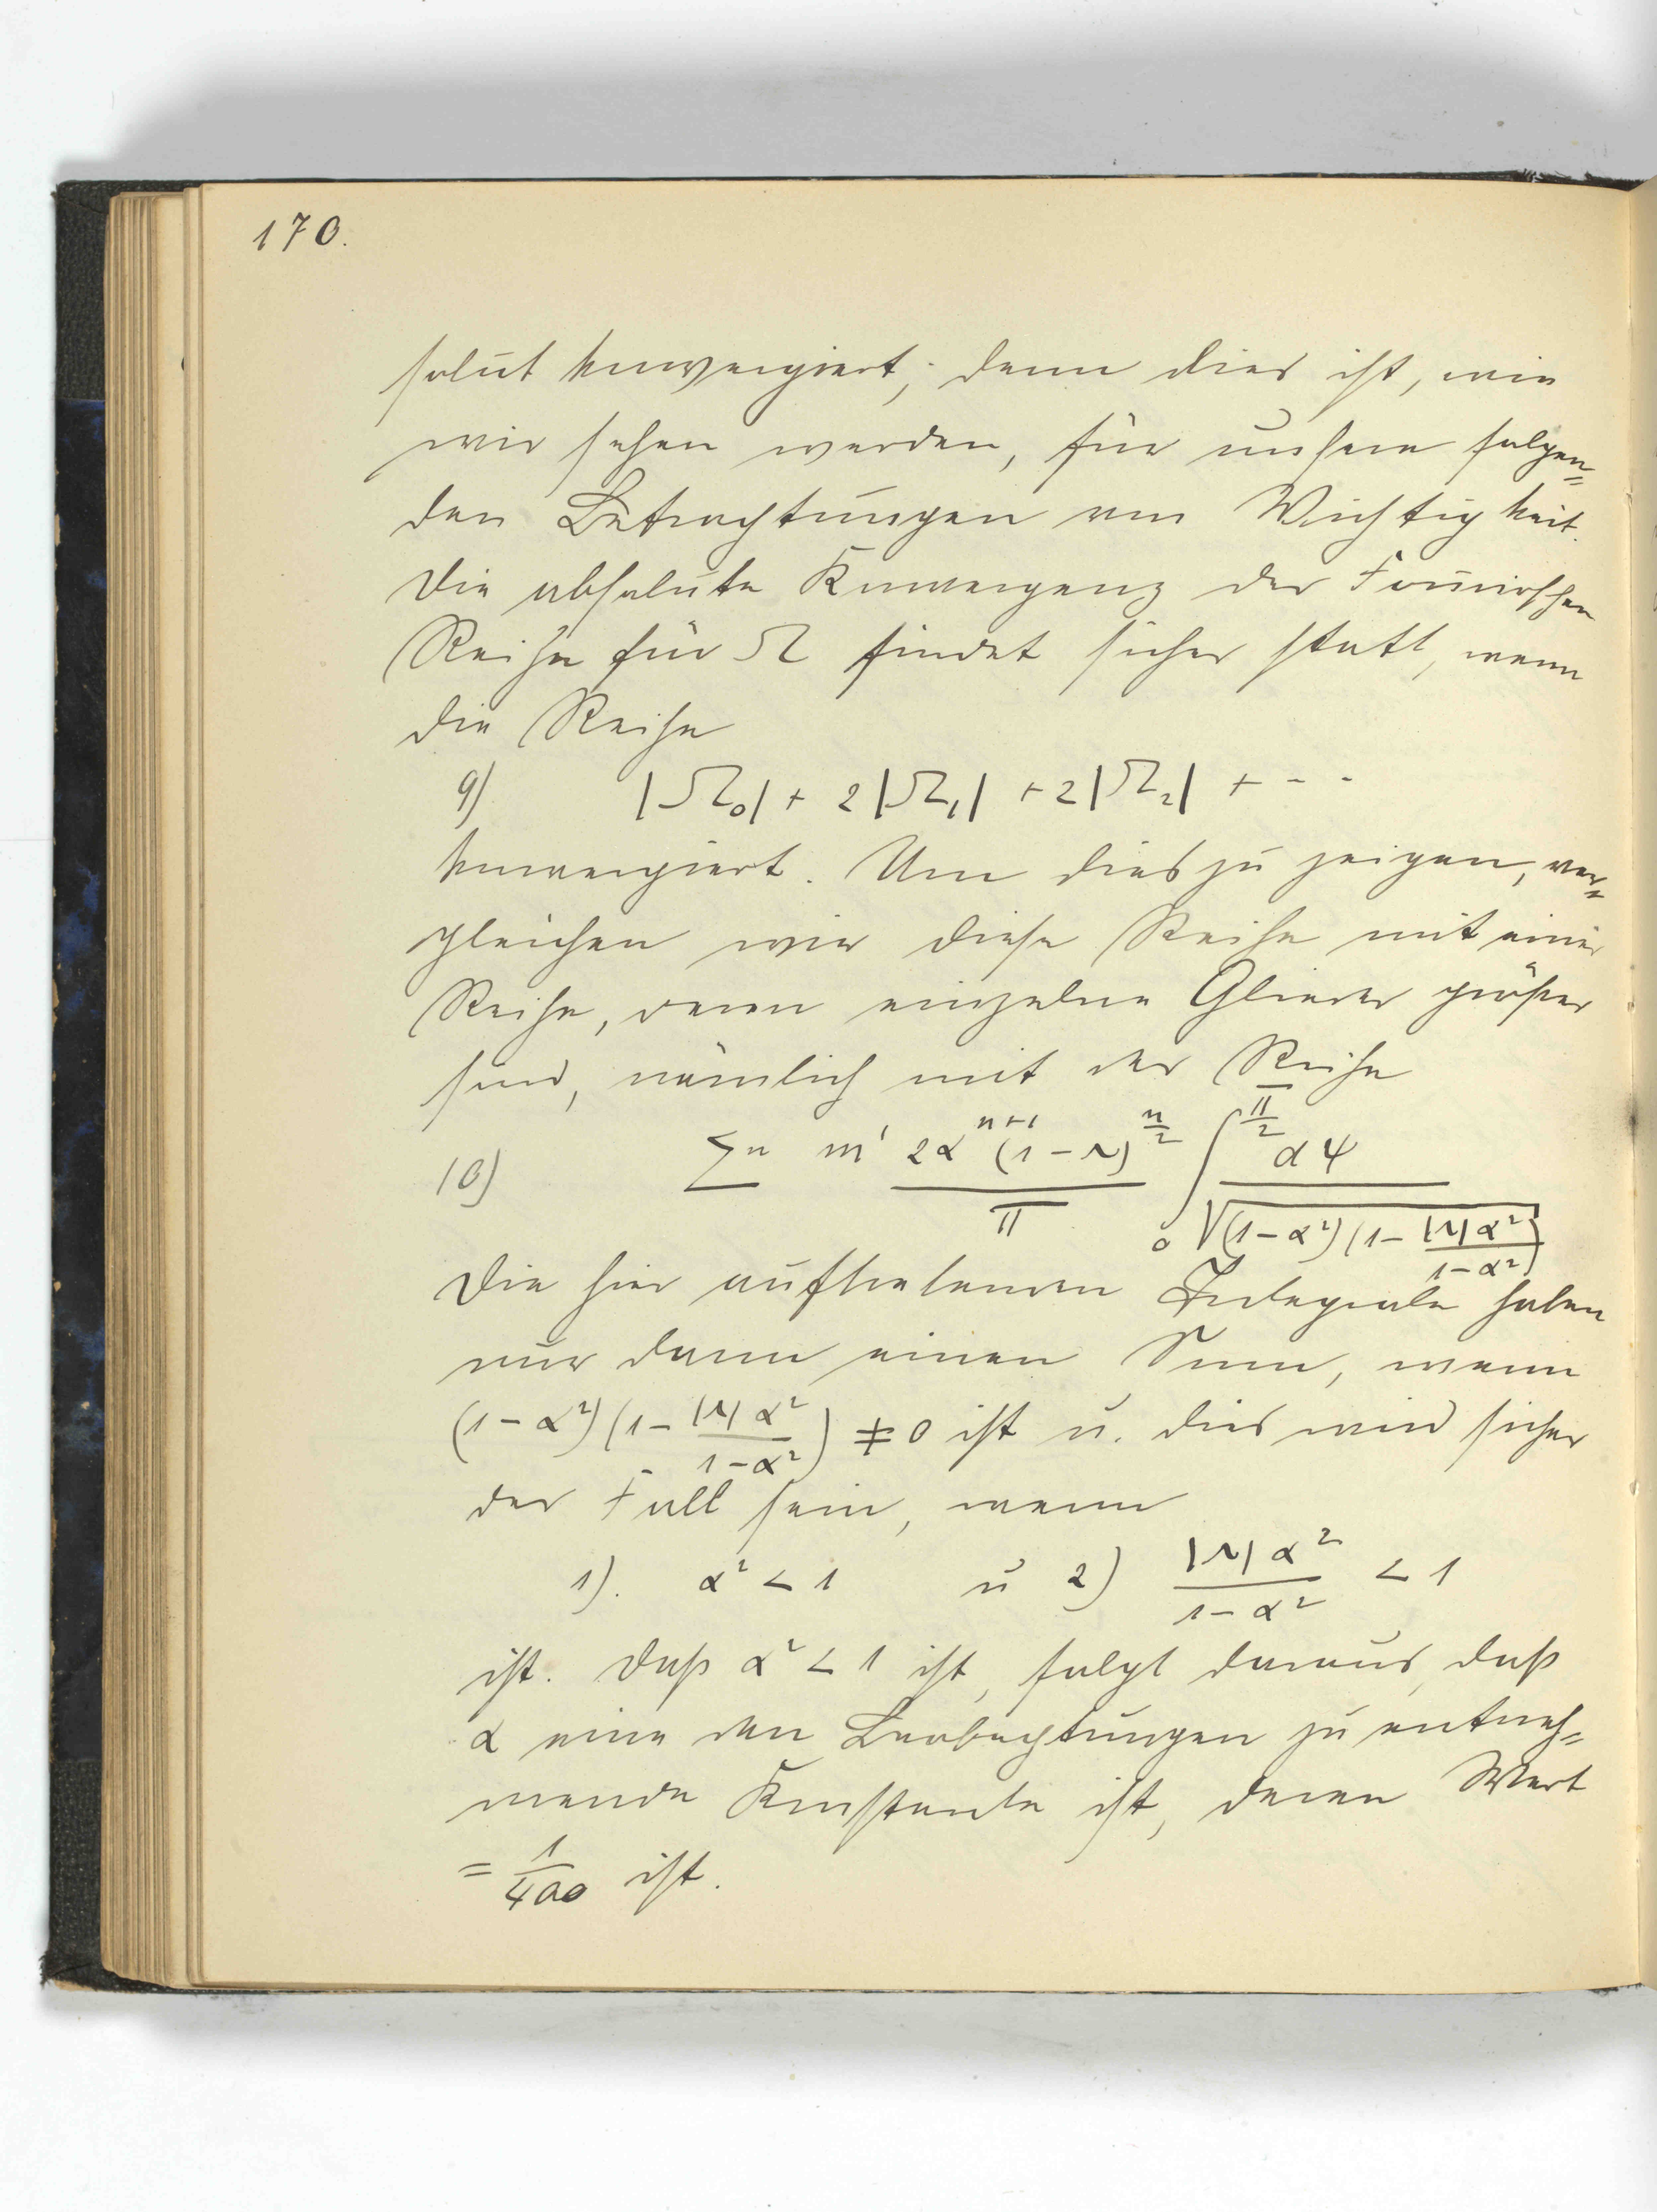 170.
solut konvergiert; denn dies ist, wie
wir sehen werden, für unsere folgen=
den Betrachtungen von Wichtigkeit.
Die absolute Konvergenz der Fourierschen
Reihe für Ω findet sicher statt, wenn
die Reihe
9) |Ω₀| + 2|Ω₁| + 2|Ω₂| + - -
konvergiert. Um dies zu zeigen, ver=
gleichen wir diese Reihe mit einer
Reihe, deren einzelne Glieder größer
sind, nämlich mit der Reihe
10) \sum n m' \frac{2α^{n+1}(1-r)^{\frac{n}{2}}}{π} \int_0^{\frac{π}{2}} \frac{dψ}{\sqrt{(1-α²)(1-\frac{|r|α²}{1-α²})}}
Die hier auftretenden Integrale haben
nur dann einen Sinn, wenn
(1-α²)(1-\frac{|r|α²}{1-α²}) ≠ 0 ist u. dies wird sicher
der Fall sein, wenn
1). α² < 1 u 2) \frac{|r|α²}{1-α²} < 1
ist. Daß α² < 1 ist, folgt daraus, daß
α eine den Beobachtungen zu entneh=
mende Konstante ist, deren Wert
= \frac{1}{400} ist.